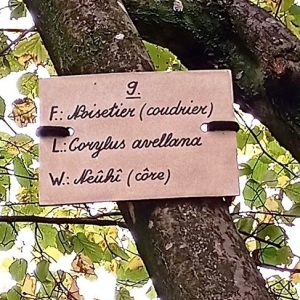 9.
F.: Noisetier (coudrier)
L.: Corylus avellana
W.: Neûhî (côre)